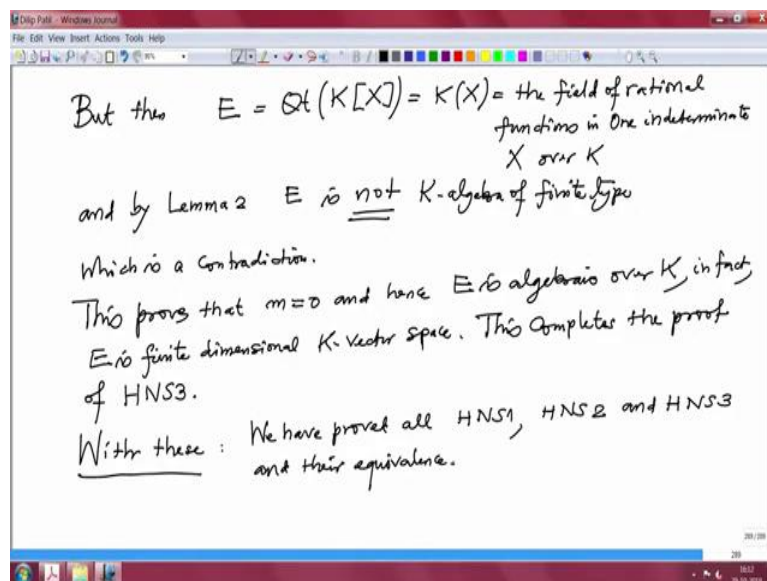 Dilip Patil - Windows Journal
File Edit View Insert Actions Tools Help
But then E = Qt(K[X]) = K(X) = the field of rational
functions in One indeterminate
X over K
and by Lemma 2 E is not K-algebra of finite type
Which is a Contradiction.
This proves that m=0 and hence E is algebraic over K, in fact,
E is finite dimensional K-Vector space. This Completes the proof
of HNS3.
With these : We have proved all HNS1, HNS2 and HNS3
and their equivalence.
289